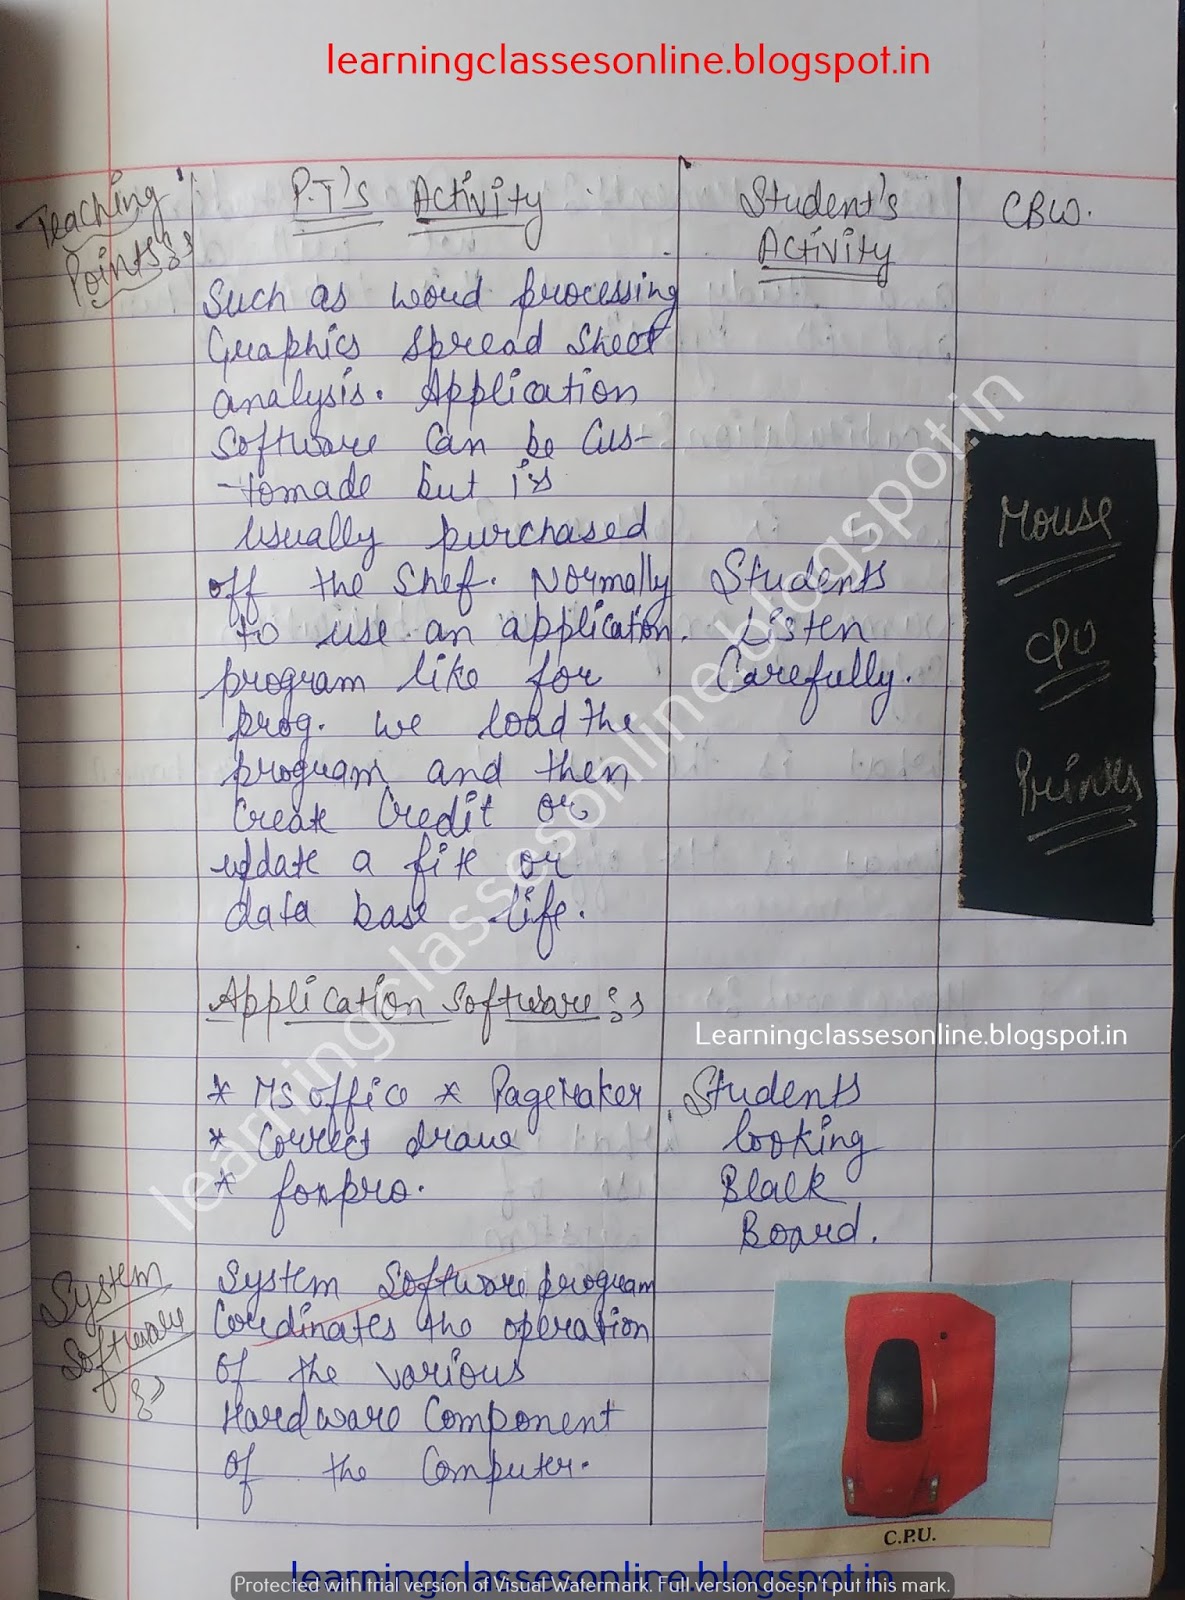 learningclassesonline.blogspot.in
Teaching
Points:
P.T's Activity
Student's
Activity
CBW.
Such as word processing
Graphics spread sheet
analysis. Application
software can be Cus-
-tomade but is
usually purchased
off the shef. Normally
to use an application
program like for
prog. we load the
program and then
Create Credit or
update a file or
data base life.
Students
Listen
Carefully.
Mouse
CPU
Printer
Application Software :
* MS office * PageMaker
* Correct drawe
* foxpro.
Learningclassesonline.blogspot.in
Students
looking
Black
Board.
System
Software
:
System Software program
Cordinates the operation
of the various
Hardware Component
of the Computer.
C.P.U.
learningclassesonline.blogspot.in
learningclassesonline.blogspot.in
Protected with trial version of Visual Watermark. Full version doesn't put this mark.